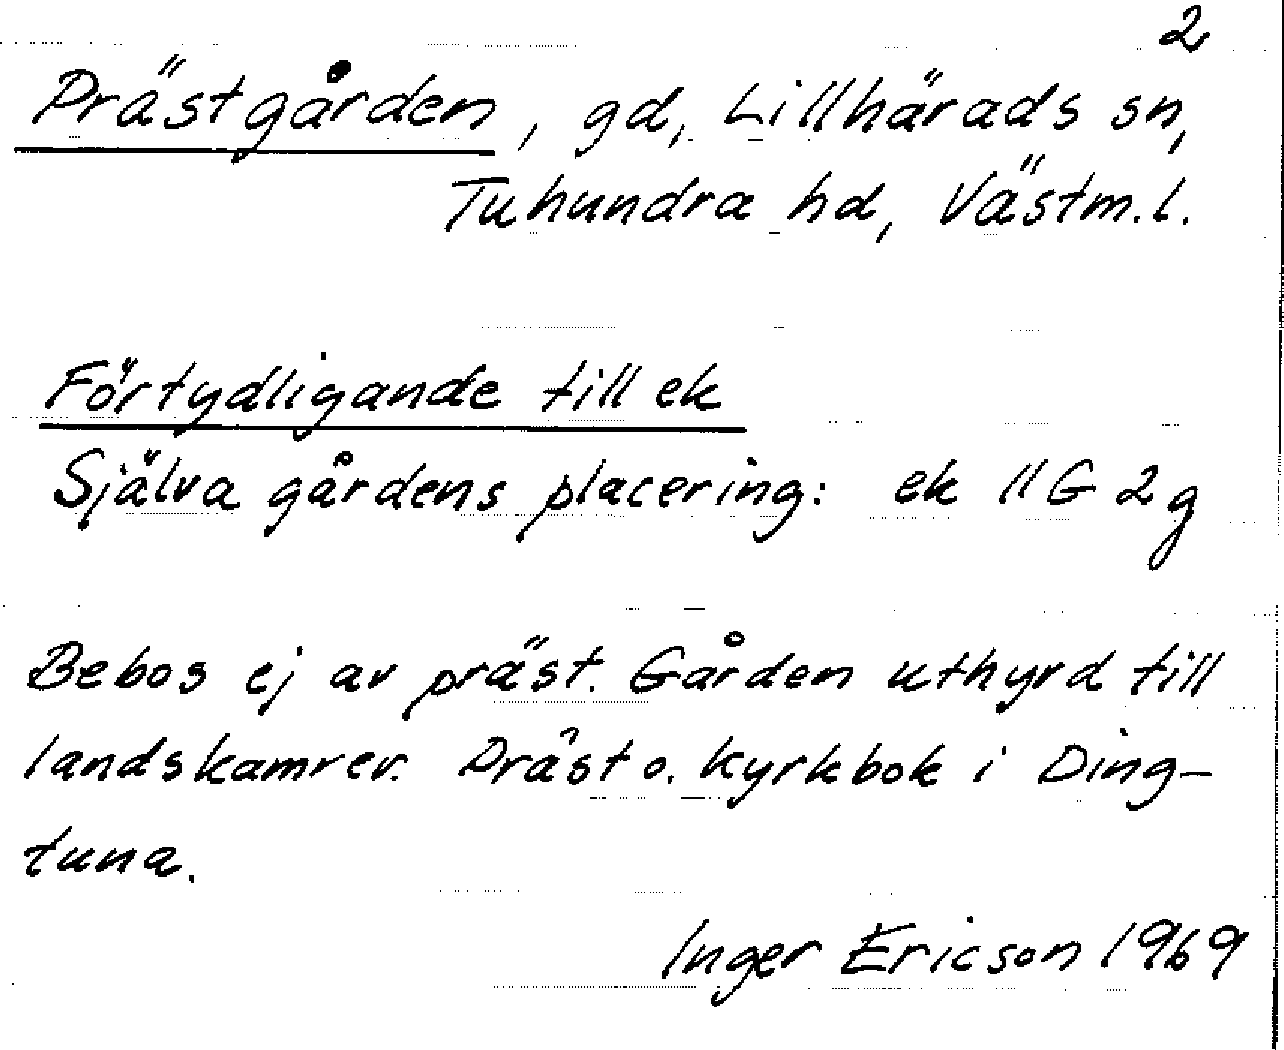 2
Prästgården, gd, Lillhärads sn,
Tuhundra hd, Västm.l.
Förtydligande till ek
Själva gårdens placering: ek 11G 2g
Bebos ej av präst. Gården uthyrd till
landskamrer. Präst o. kyrkbok i Ding-
tuna.
Inger Ericson 1969